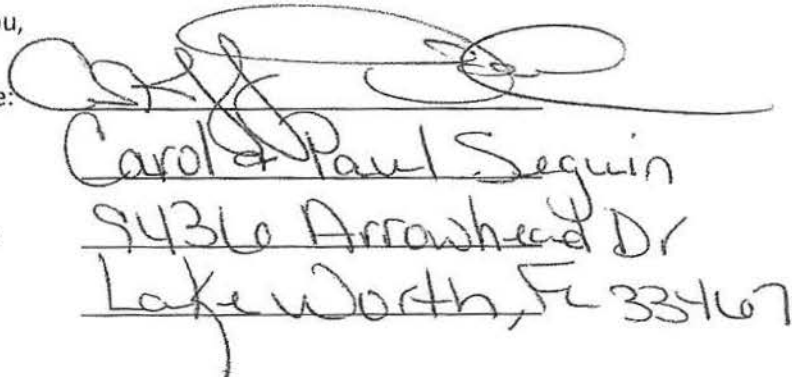 ou,
e:
Carol & Paul Seguin
9436 Arrowhead Dr
Lake Worth, FL 33467